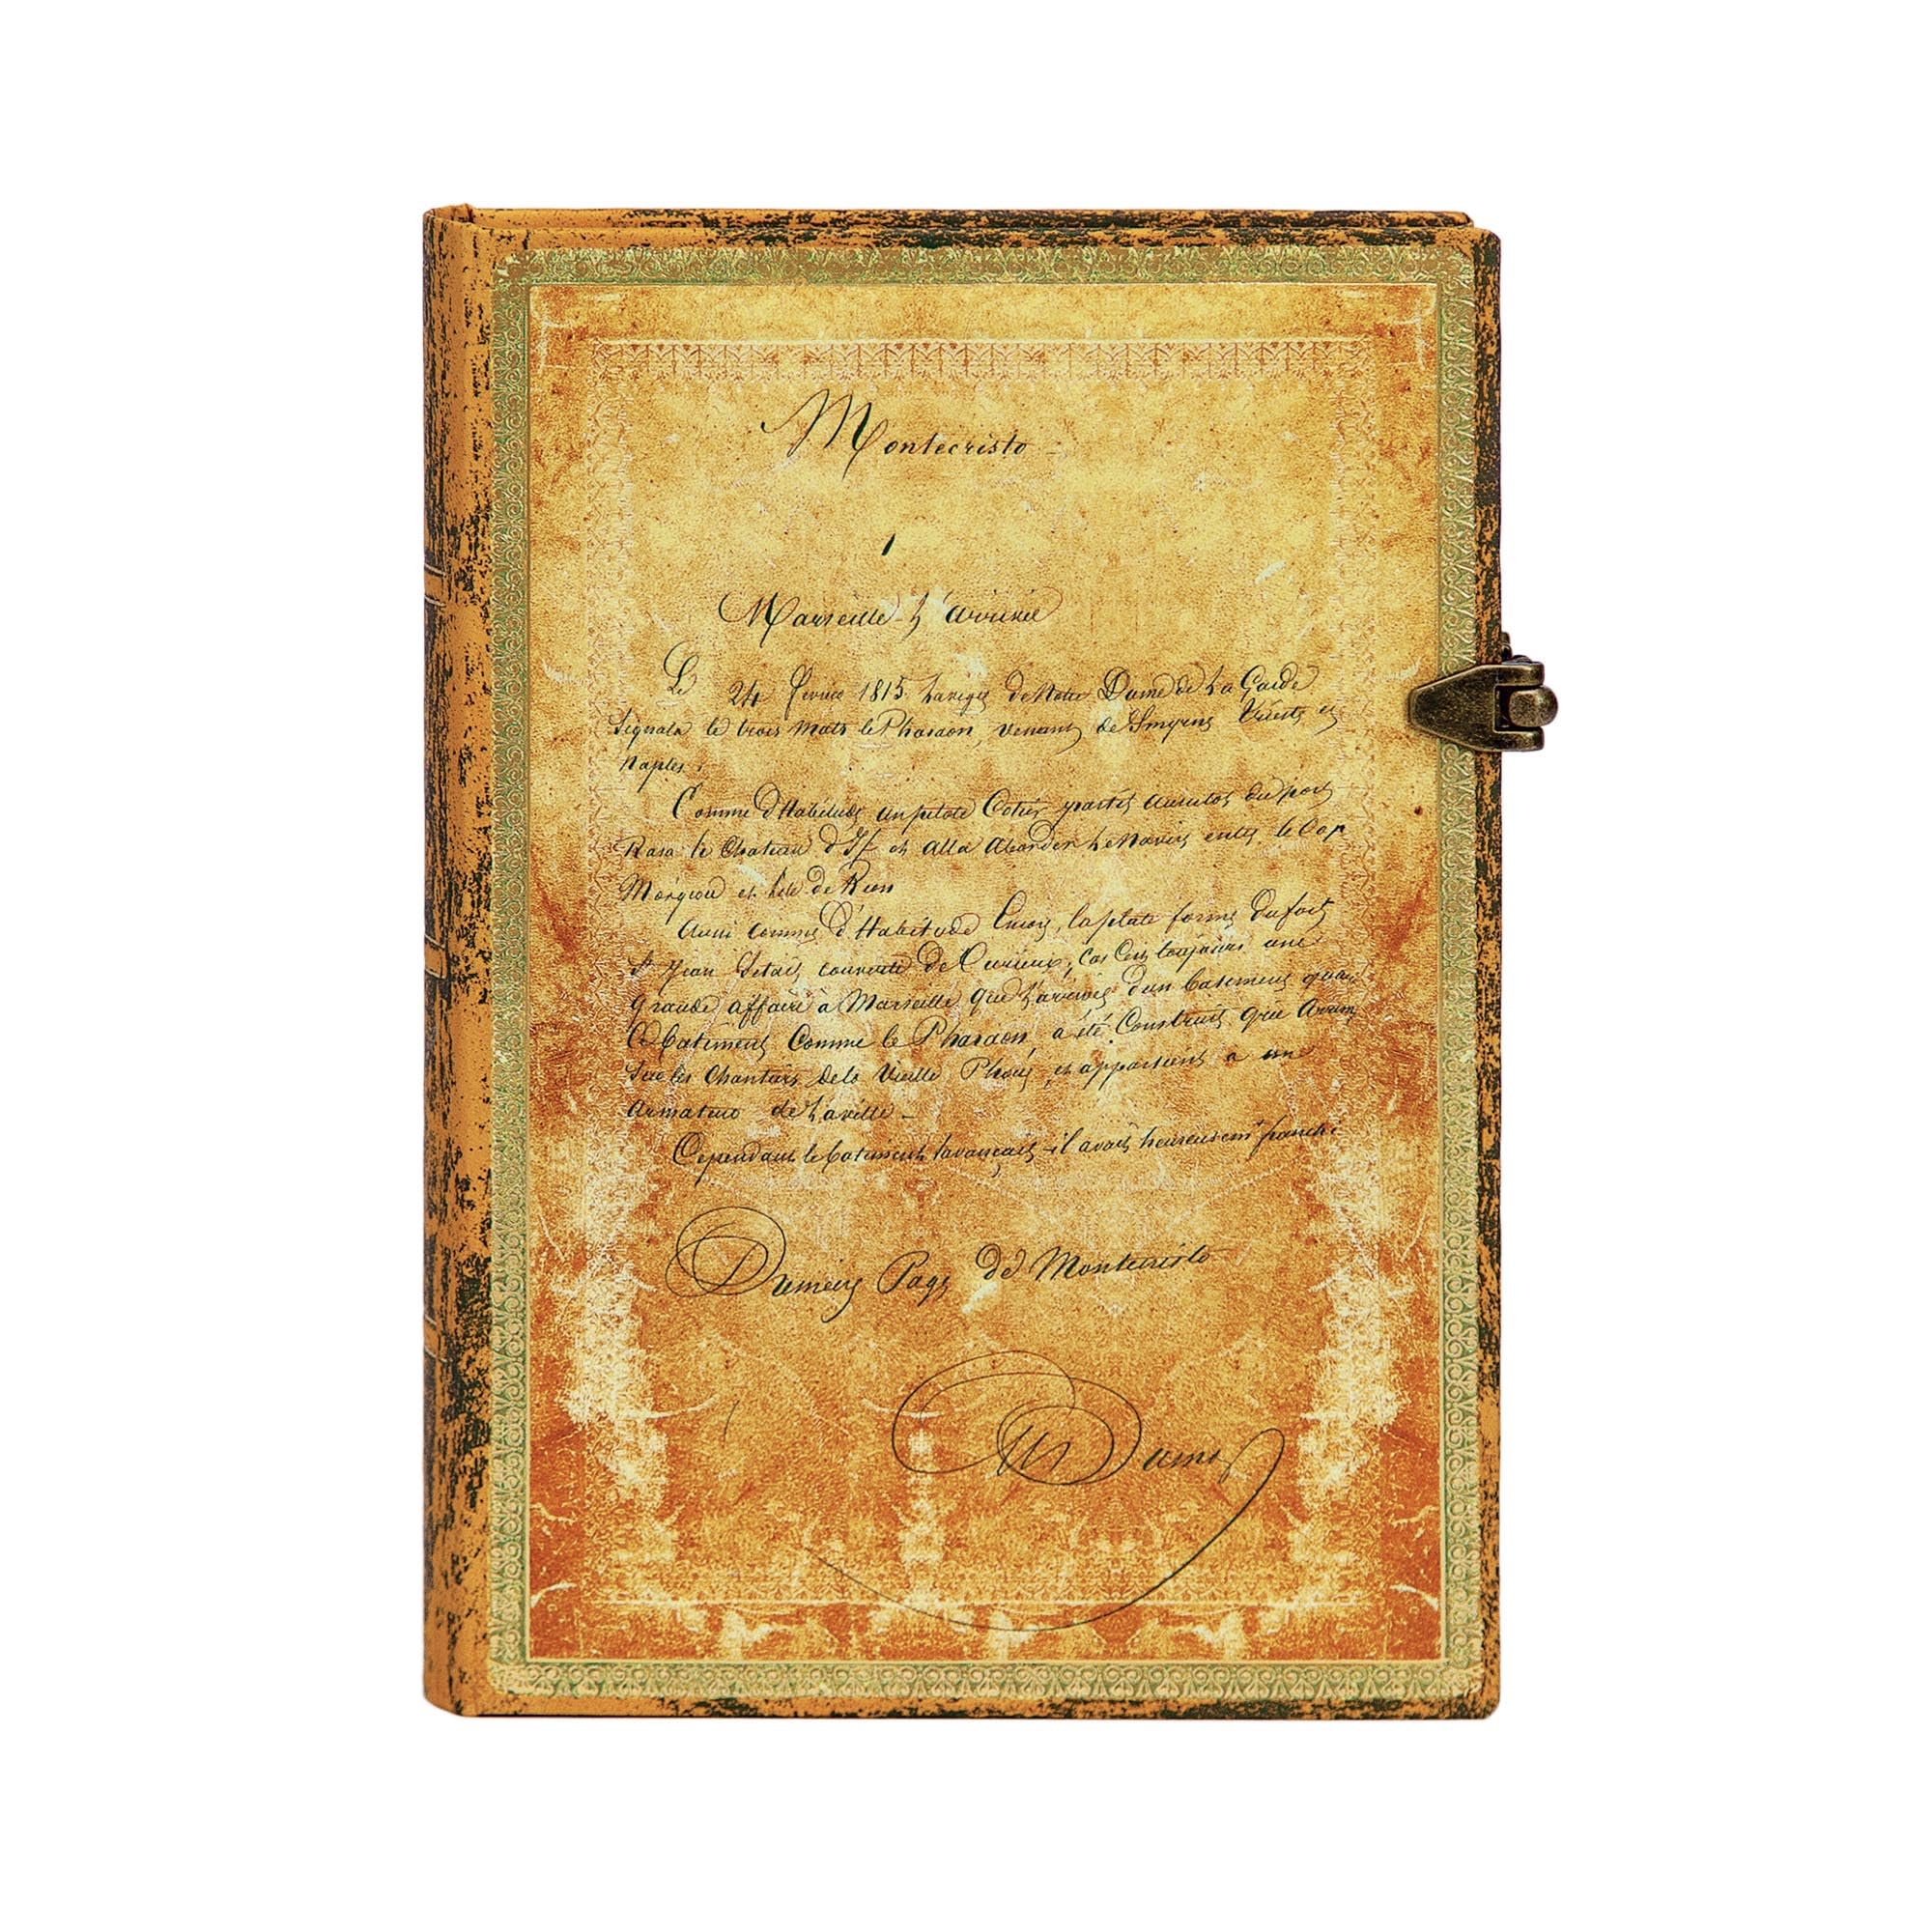 Montecristo
1
Marseille - L'arrivée
Le 24 février 1815 la vigie de Notre Dame de La Garde
Signala le trois mats le Pharaon, venant de Smyrne Trieste et
Naples.
Comme d'Habitude un pilote Cotier partit aussitot du port
Rasa le Chateau d'If et alla aborder le Navire entre le Cap
Morgiou et l'ile de Rion
Aussi comme d'Habitude Encore, la plate forme du fort
St Jean S'etait couverte de Curieux, Car C'est toujours une
grande affaire à Marseille que l'arrivée d'un batiment quand
Ce batiment Comme le Pharaon, a été Construit gréé Arrimé
Sur les Chantiers de la Vieille Phocée, et appartient a un
Armateur de la ville -
Cependant le batiment s'avançait - il avait heureusemt franchi
Page de Montecristo
Dumas